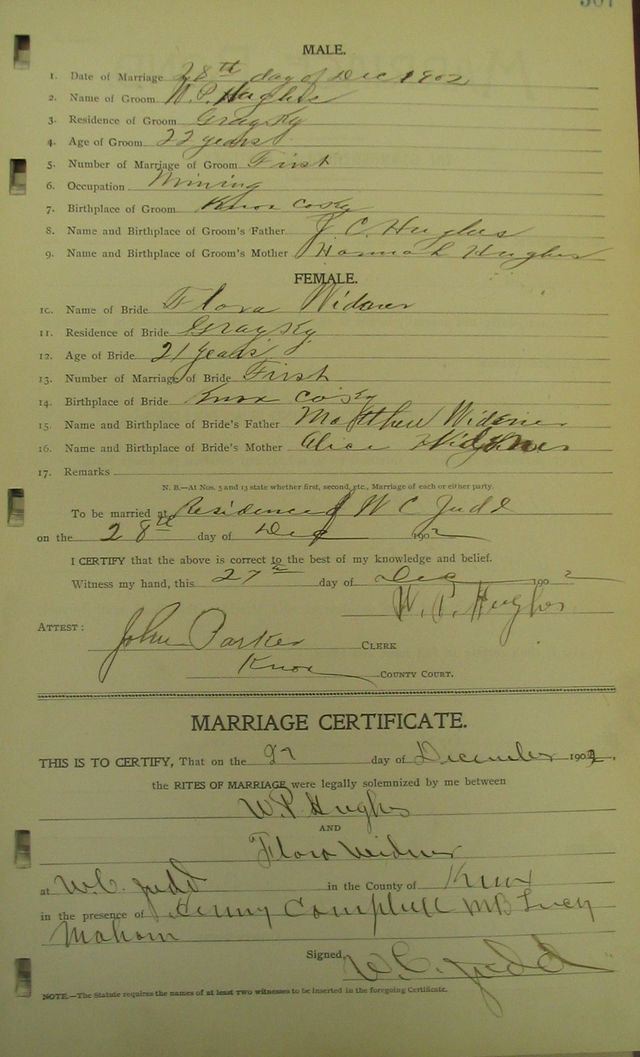 307
MALE.
1. Date of Marriage 28th day of Dec 1902
2. Name of Groom W. P. Hughes
3. Residence of Groom Gray Ky
4. Age of Groom 22 years
5. Number of Marriage of Groom First
6. Occupation Mining
7. Birthplace of Groom Knox Co Ky
8. Name and Birthplace of Groom's Father J C. Hughes
9. Name and Birthplace of Groom's Mother Hannah Hughes
FEMALE.
10. Name of Bride Flora Widner
11. Residence of Bride Gray Ky
12. Age of Bride 21 years
13. Number of Marriage of Bride First
14. Birthplace of Bride Knox Co Ky
15. Name and Birthplace of Bride's Father Matthew Widener
16. Name and Birthplace of Bride's Mother Alice
17. Remarks
N. B.—At Nos. 5 and 13 state whether first, second, etc., Marriage of each or either party.
To be married at Residence of W C Judd
on the 28th day of Dec 1902
I CERTIFY that the above is correct to the best of my knowledge and belief.
Witness my hand, this 27th day of Dec 1902
W. P. Hughes
ATTEST: John Parker CLERK
Knox COUNTY COURT.
MARRIAGE CERTIFICATE.
THIS IS TO CERTIFY, That on the 27 day of December 1902.
the RITES OF MARRIAGE were legally solemnized by me between
W. P. Hughes
AND
Flora Widner
at W. C. Judd in the County of Knox
in the presence of Campbell M B
Signed, W. C. Judd
NOTE.—The Statute requires the names of at least two witnesses to be inserted in the foregoing Certificate.